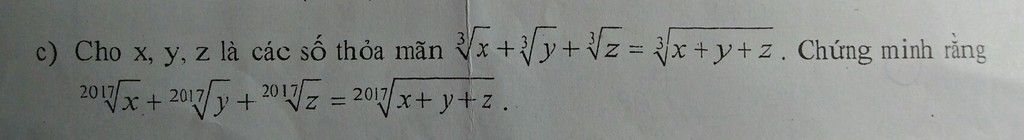 c) Cho x, y, z là các số thỏa mãn ∛x + ∛y + ∛z = ∛(x + y + z). Chứng minh rằng
²⁰¹⁷√x + ²⁰¹⁷√y + ²⁰¹⁷√z = ²⁰¹⁷√(x + y + z).